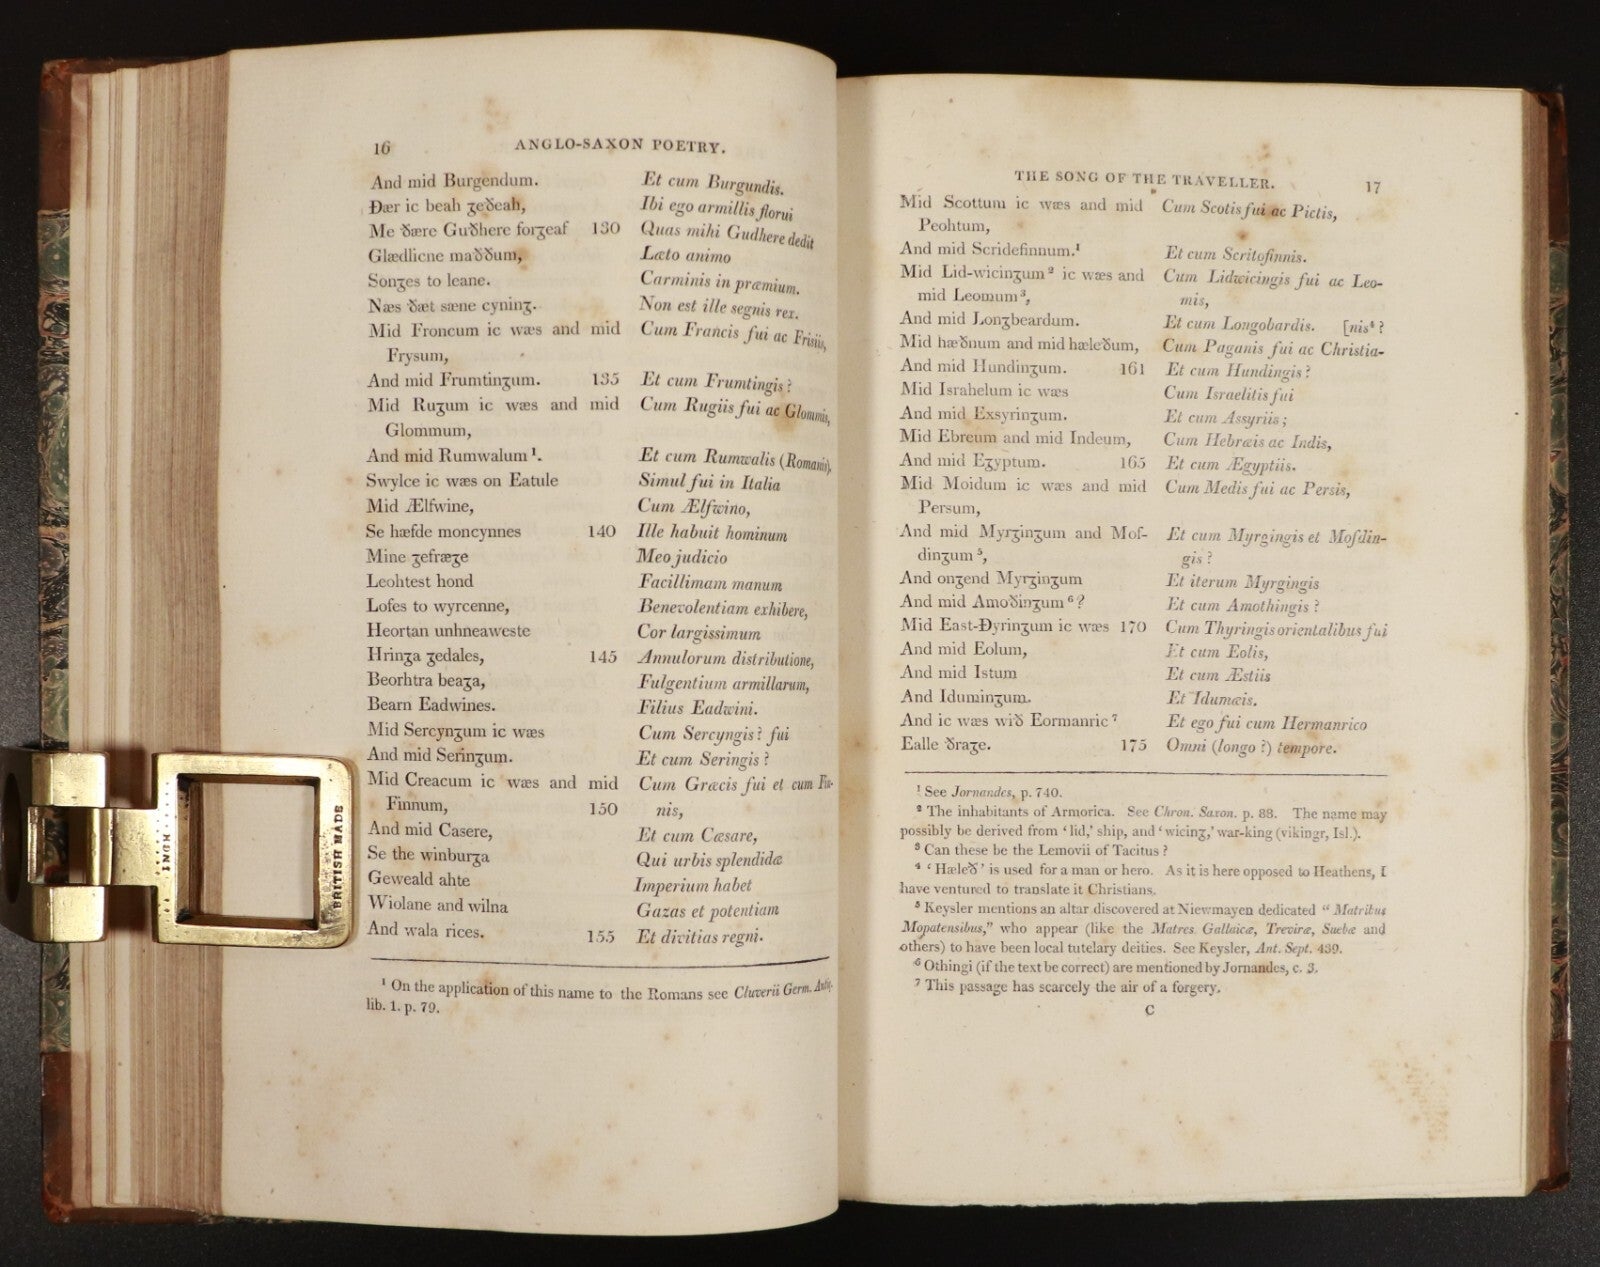 16 ANGLO-SAXON POETRY.
And mid Burgendum. Et cum Burgundis.
Ðær ic beah ȝeðeah, Ibi ego armillis florui
Me ðære Guðhere forȝeaf 130 Quas mihi Gudhere dedit
Glædlicne maððum, Læto animo
Sonȝes to leane. Carminis in præmium.
Næs ðæt sæne cyninȝ. Non est ille segnis rex.
Mid Froncum ic wæs and mid Cum Francis fui ac Frisiis,
Frysum,
And mid Frumtinȝum. 135 Et cum Frumtingis?
Mid Ruȝum ic wæs and mid Cum Rugiis fui ac Glommis,
Glommum,
And mid Rumwalum ¹. Et cum Rumwalis (Romanis),
Swylce ic wæs on Eatule Simul fui in Italia
Mid Ælfwine, Cum Ælfwino,
Se hæfde moncynnes 140 Ille habuit hominum
Mine ȝefræȝe Meo judicio
Leohtest hond Facillimam manum
Lofes to wyrcenne, Benevolentiam exhibere,
Heortan unhneaweste Cor largissimum
Hrinȝa ȝedales, 145 Annulorum distributione,
Beorhtra beaȝa, Fulgentium armillarum,
Bearn Eadwines. Filius Eadwini.
Mid Sercynȝum ic wæs Cum Sercyngis? fui
And mid Serinȝum. Et cum Seringis?
Mid Creacum ic wæs and mid Cum Græcis fui et cum Fin-
Finnum, 150 nis,
And mid Casere, Et cum Cæsare,
Se the winburȝa Qui urbis splendidæ
Geweald ahte Imperium habet
Wiolane and wilna Gazas et potentiam
And wala rices. 155 Et divitias regni.
¹ On the application of this name to the Romans see Cluverii Germ. Antiq.
lib. 1. p. 79.
INGH
BRITISH MADE
THE SONG OF THE TRAVELLER. 17
Mid Scottum ic wæs and mid Cum Scotis fui ac Pictis,
Peohtum,
And mid Scridefinnum.¹ Et cum Scritofinnis.
Mid Lid-wicinȝum ² ic wæs and Cum Lidwicingis fui ac Leo-
mid Leomum ³, mis,
And mid Lonȝbeardum. Et cum Longobardis. [nis⁴?
Mid hæðnum and mid hæleðum, Cum Paganis fui ac Christia-
And mid Hundinȝum. 161 Et cum Hundingis?
Mid Israhelum ic wæs Cum Israelitis fui
And mid Exsyrinȝum. Et cum Assyriis;
Mid Ebreum and mid Indeum, Cum Hebræis ac Indis,
And mid Eȝyptum. 165 Et cum Ægyptiis.
Mid Moidum ic wæs and mid Cum Medis fui ac Persis,
Persum,
And mid Myrȝinȝum and Mof- Et cum Myrgingis et Mofdin-
dinȝum ⁵, gis?
And onȝend Myrȝinȝum Et iterum Myrgingis
And mid Amoðinȝum ⁶? Et cum Amothingis?
Mid East-Ðyrinȝum ic wæs 170 Cum Thyringis orientalibus fui
And mid Eolum, Et cum Eolis,
And mid Istum Et cum Æstiis
And Iduminȝum. Et Idumæis.
And ic wæs wið Eormanric ⁷ Et ego fui cum Hermanrico
Ealle ðraȝe. 175 Omni (longo?) tempore.
¹ See Jornandes, p. 740.
² The inhabitants of Armorica. See Chron. Saxon. p. 88. The name may
possibly be derived from ‘lid,’ ship, and ‘wicinȝ,’ war-king (vikingr, Isl.).
³ Can these be the Lemovii of Tacitus?
⁴ ‘Hæleð’ is used for a man or hero. As it is here opposed to Heathens, I
have ventured to translate it Christians.
⁵ Keysler mentions an altar discovered at Niewmayen dedicated “Matribus
Mopatensibus,” who appear (like the Matres Gallaicæ, Treviræ, Suebæ and
others) to have been local tutelary deities. See Keysler, Ant. Sept. 439.
⁶ Othingi (if the text be correct) are mentioned by Jornandes, c. 3.
⁷ This passage has scarcely the air of a forgery.
C